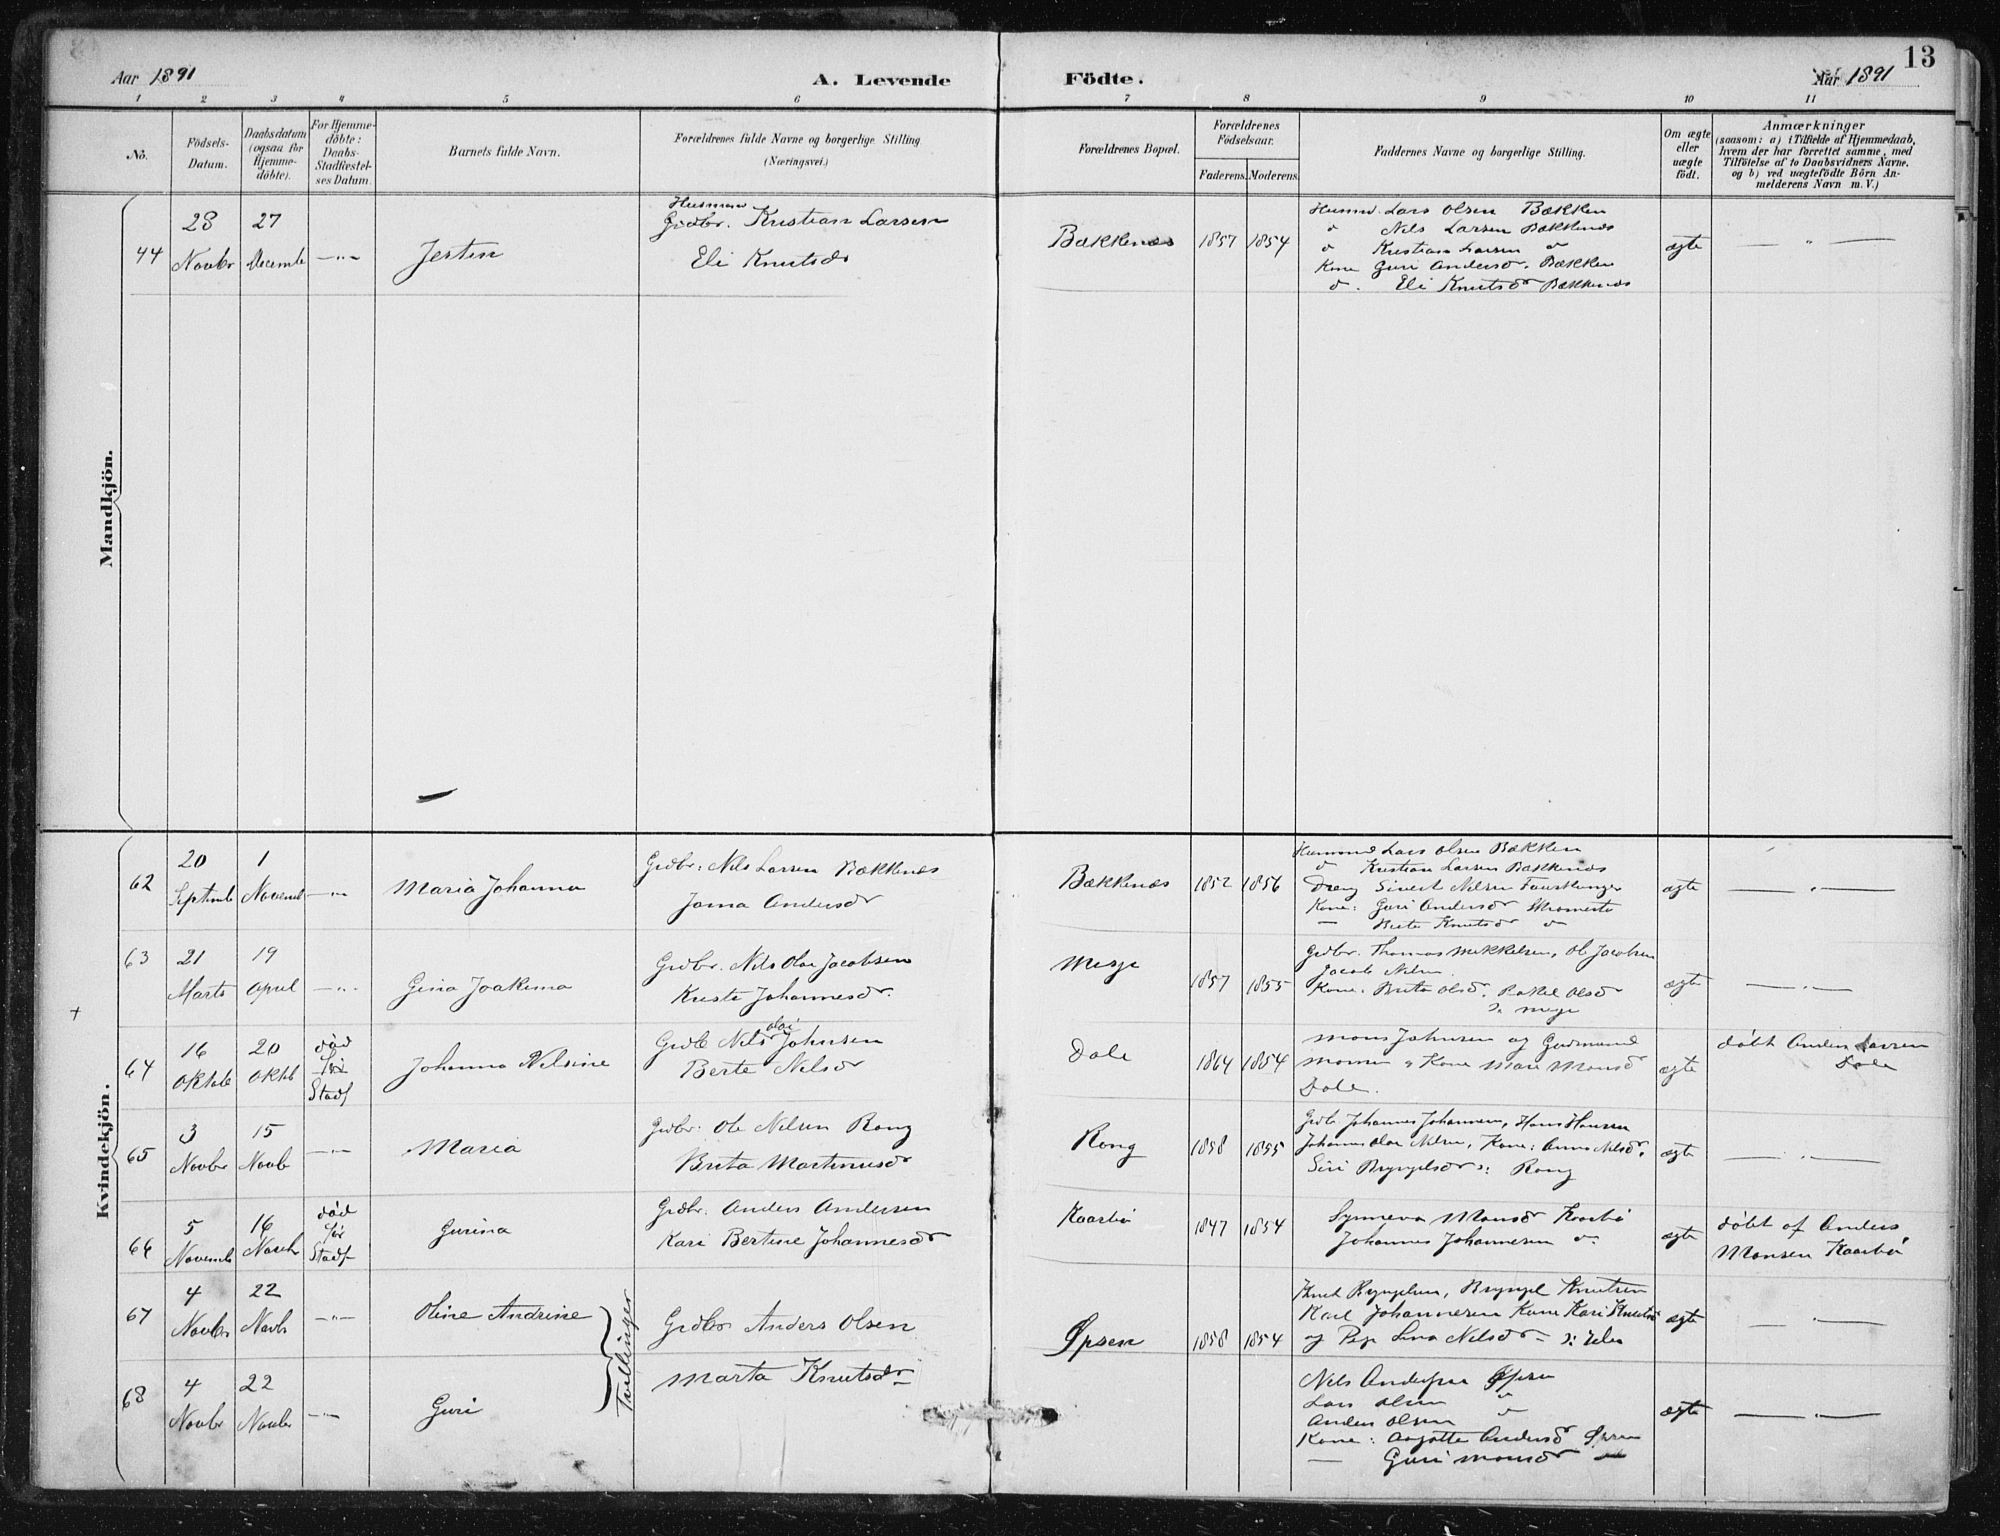 13
Aar 1891
A. Levende
Födte.
Aar 1891
1 2 3 4 5 6 7 8 9 10 11
No.
Födsels-
Datum.
Daabsdatum
(ogsaa for
Hjemme-
döbte).
For Hjemme-
döbte:
Daabs-
Stadfæstel-
ses Datum.
Barnets fulde Navn.
Forældrenes fulde Navne og borgerlige Stilling
(Næringsvei.)
Forældrenes Bopæl.
Forældrenes
Födselsaar.
Faderens.
Moderens.
Faddernes Navne og borgerlige Stilling.
Om ægte
eller
uægte
födt.
Anmærkninger
(saasom: a) i Tilfælde af Hjemmedaab,
hvem der har forrettet samme, med
Tilföielse af to Daabsvidners Navne.
og b) ved uægtefödte Börn An-
melderens Navn m. V.)
Mandkjön.
44
28
Novbr
27
Decemb
— " —
Jesten
Husmand
Grdbr. Kristian Larsen
Eli Knutsdr
Bækkenes
1857
1854
Husmd. Lars Olsen Bækken
do Nils Larsen Bækkenes
do Kristian Larsen do
Kone Guri Andersdr. Bækken
do. Eli Knutsdr Bækkenes
ægte
— " —
Kvindekjön.
62
20
Septemb
1
Novemb
— " —
Maria Johanna
Grdbr: Nils Larsen Bækkenes
Joma Andersdr
Bækkenes
1852
1856
Husmand Lars Olsen Bækken
do Kristian Larsen Bækkenes
Dreng Sivert Nilsen
Kone: Guri Andersdr
— Berte Knutsdr do
ægte
— " —
63
21
Marts
19
April
— " —
Gina Joakima
Grdbr. Nils Olai Jacobsen
Kristi Johannesdr.
Mesje
1857
1855
Grdbr. Thomas Mikkelsen, Ole Jacobsen
Jacob Nilsen
Kone: Brita Olsdr, Rakel Olsdr
Mesje
ægte
— " —
+
64
16
Oktob
20
Oktb
död
för
Stadf
Johanna Nelsine
olai
Grdb Nils Johnsen
Berte Nilsdr
Dale
1864
1854
Mons Johnsen og Gudmund
Monsen, Kone Mari Monsdr
Dale.
ægte
döbt Anders Larsen
Dale
65
3
Novbr
15
Novb
— " —
Maria
Grdbr: Ole Nilsen Rong
Brita Martinusdr
Rong
1858
1855
Grdb Johannes Johannesen, Hans Hansen
Johannes Olai Nilsen, Kone: Anna Nilsdr,
Siri Bryngelsdr : Rong
ægte
— " —
66
5
Novemb
16
Novbr
död
för
Stadf
Gurina
Grdbr: Anders Andersen
Kari Bertine Johannesdr
Kaarbö
1847
1854
Synneva Monsdr Kaarbö
Johannes Johannesen do
ægte
döbt af Anders
Monsen Kaarbö
67
4
Novbr
22
Novb
— " —
Oline Andrine
Tvillinger
Grdbr Anders Olsen
Marta Knutsdr
Öpsen
1858
1854
Knut Bryngelsen, Bryngel Knutsen
Karl Johannesen Kone Kari Knutsdr
og Pige Lina Nilsdr
ægte
68
4
Novbr
22
Novbr
— " —
Guri
Nils Andersen Öpsen
Lars Olsen "
Anders Olsen "
Kone: Andersdr Öpsen
— Guri Monsdr
ægte
— " —